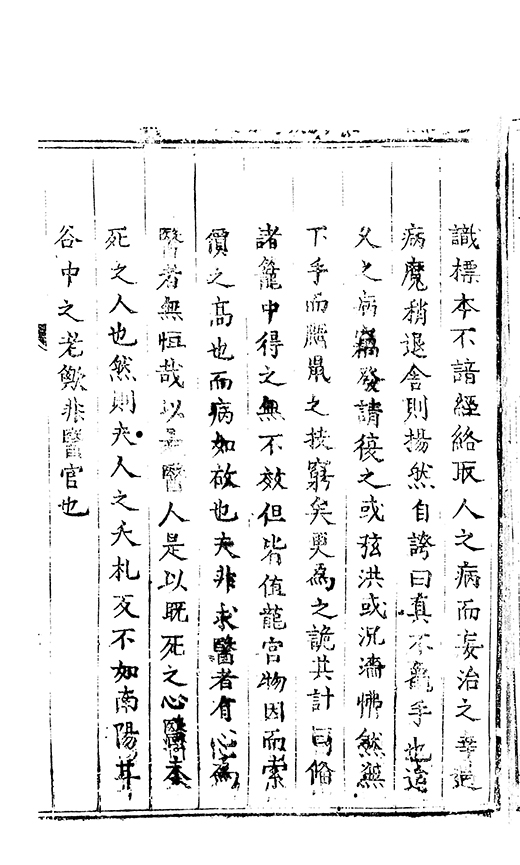 識標本不諳經絡取人之病而妄治之幸過
病魔稍退舍則揚然自誇曰真不龜手也迨
久之病竊發請復之或弦洪或沉濇怫然無
下手而鼯鼠之技窮矣更為之詭其計曰僃
諸籠中得之無不效但皆值龍宮物因而索
價之高也而病如故也夫非求醫者有心為
醫者無恒哉以是醫人是以既死之心醫未
死之人也然則夫人之夭札反不如南陽井
谷中之老歟非醫官也